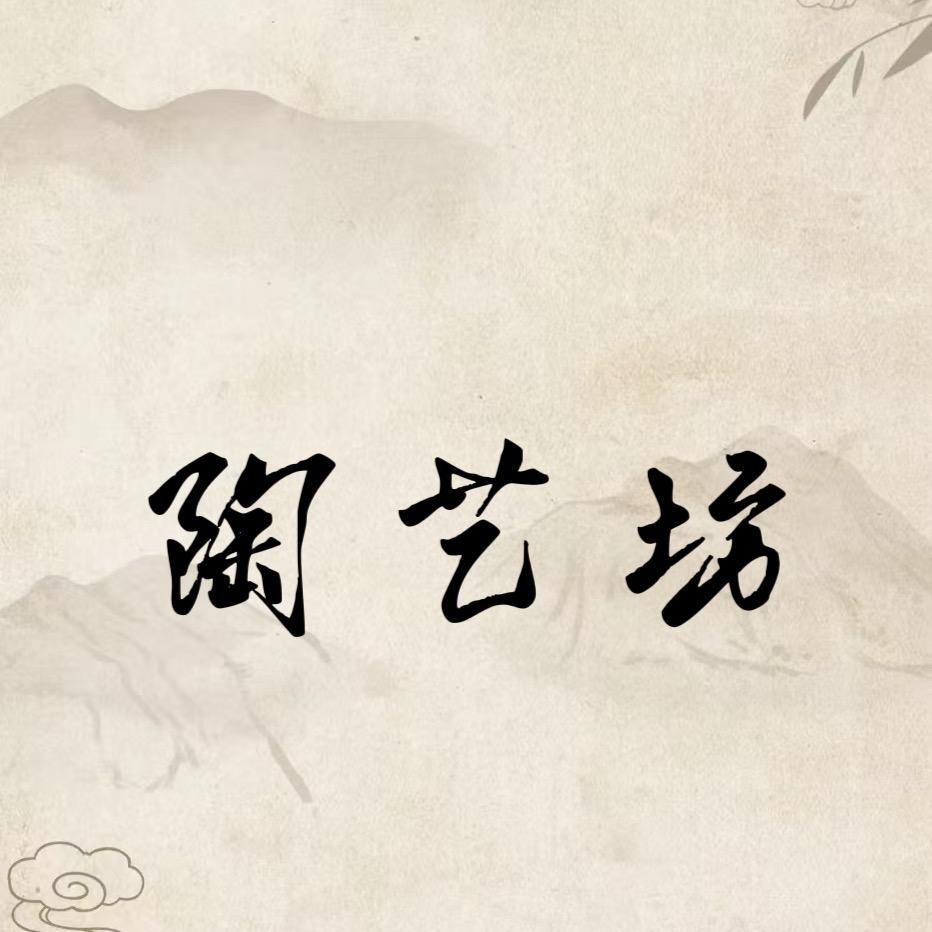 陶艺坊